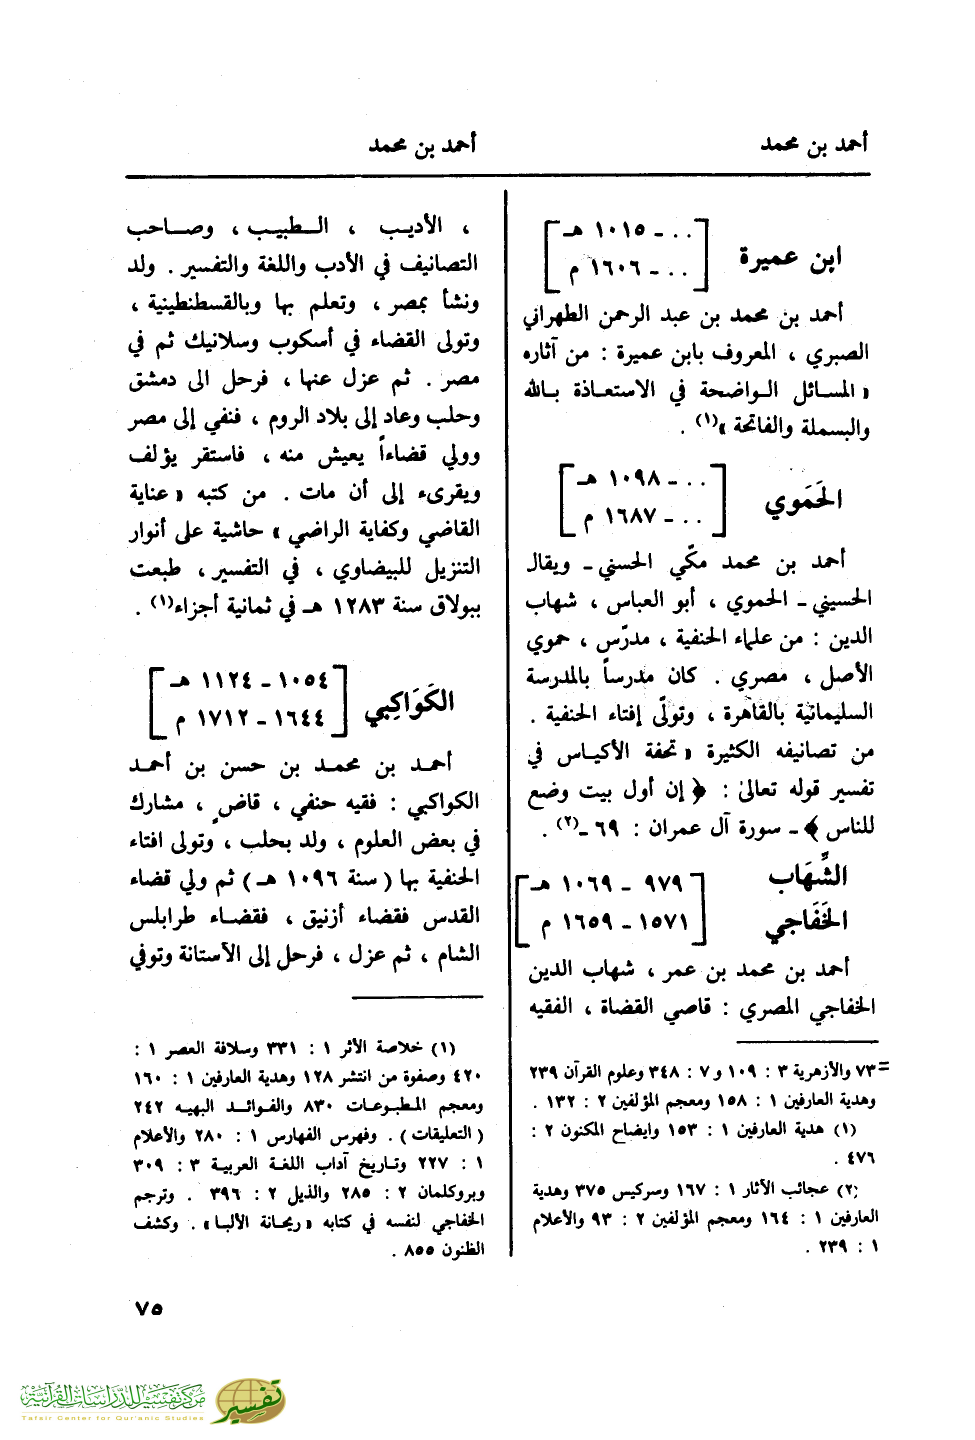 أحمد بن محمد
أحمد بن محمد
ابن عميرة
[ . . ـ ١٠١٥ هـ
. . ـ ١٦٠٦ م ]
أحمد بن محمد بن عبد الرحمن الطهراني
الصبري ، المعروف بابن عميرة : من آثاره
« المسائل الواضحة في الاستعاذة بالله
والبسملة والفاتحة »(١) .
الحَمَوي
[ . . ـ ١٠٩٨ هـ
. . ـ ١٦٨٧ م ]
أحمد بن محمد مكّي الحسني ـ ويقال
الحسيني ـ الحموي ، أبو العباس ، شهاب
الدين : من علماء الحنفية ، مدرّس ، حموي
الأصل ، مصري . كان مدرساً بالمدرسة
السليمانية بالقاهرة ، وتولّى إفتاء الحنفية .
من تصانيفه الكثيرة « تحفة الأكياس في
تفسير قوله تعالىٰ : ﴿ إن أول بيت وضع
للناس ﴾ ـ سورة آل عمران : ٦٩ ـ(٢) .
الشِّهَاب
الخَفَاجي
[ ٩٧٩ ـ ١٠٦٩ هـ
١٥٧١ ـ ١٦٥٩ م ]
أحمد بن محمد بن عمر ، شهاب الدين
الخفاجي المصري : قاصي القضاة ، الفقيه
= ٧٣ والأزهرية ٣ : ١٠٩ و ٧ : ٣٤٨ وعلوم القرآن ٢٣٩
وهدية العارفين ١ : ١٥٨ ومعجم المؤلفين ٢ : ١٣٢ .
(١) هدية العارفين ١ : ١٥٣ وايضاح المكنون ٢ :
٤٧٦ .
(٢) عجائب الآثار ١ : ١٦٧ وسركيس ٣٧٥ وهدية
العارفين ١ : ١٦٤ ومعجم المؤلفين ٢ : ٩٣ والأعلام
١ : ٢٣٩ .
، الأديب ، الطبيب ، وصاحب
التصانيف في الأدب واللغة والتفسير . ولد
ونشأ بمصر ، وتعلم بها وبالقسطنطينية ،
وتولى القضاء في أسكوب وسلانيك ثم في
مصر . ثم عزل عنها ، فرحل الى دمشق
وحلب وعاد إلى بلاد الروم ، فنفي إلى مصر
وولي قضاءاً يعيش منه ، فاستقر يؤلف
ويقرىء إلى أن مات . من كتبه « عناية
القاضي وكفاية الراضي » حاشية على أنوار
التنزيل للبيضاوي ، في التفسير ، طبعت
ببولاق سنة ١٢٨٣ هـ في ثمانية أجزاء(١) .
الكَوَاكِبي
[ ١٠٥٤ ـ ١١٢٤ هـ
١٦٤٤ ـ ١٧١٢ م ]
أحمد بن محمد بن حسن بن أحمد
الكواكبي : فقيه حنفي ، قاضٍ ، مشارك
في بعض العلوم ، ولد بحلب ، وتولى افتاء
الحنفية بها ( سنة ١٠٩٦ هـ ) ثم ولي قضاء
القدس فقضاء أزنيق ، فقضاء طرابلس
الشام ، ثم عزل ، فرحل إلى الآستانة وتوفي
(١) خلاصة الأثر ١ : ٣٣١ وسلافة العصر ١ :
٤٢٠ وصفوة من انتشر ١٢٨ وهدية العارفين ١ : ١٦٠
ومعجم المطبوعات ٨٣٠ والفوائد البهيه ٢٤٢
( التعليقات ) . وفهرس الفهارس ١ : ٢٨٠ والأعلام
١ : ٢٢٧ وتاريخ آداب اللغة العربية ٣ : ٣٠٩
وبروكلمان ٢ : ٢٨٥ والذيل ٢ : ٣٩٦ . وترجم
الخفاجي لنفسه في كتابه « ريحانة الألبا » . وكشف
الظنون ٨٥٥ .
٧٥
مركز تفسير للدراسات القرآنية
Tafsir Center for Qur'anic Studies
تفسير